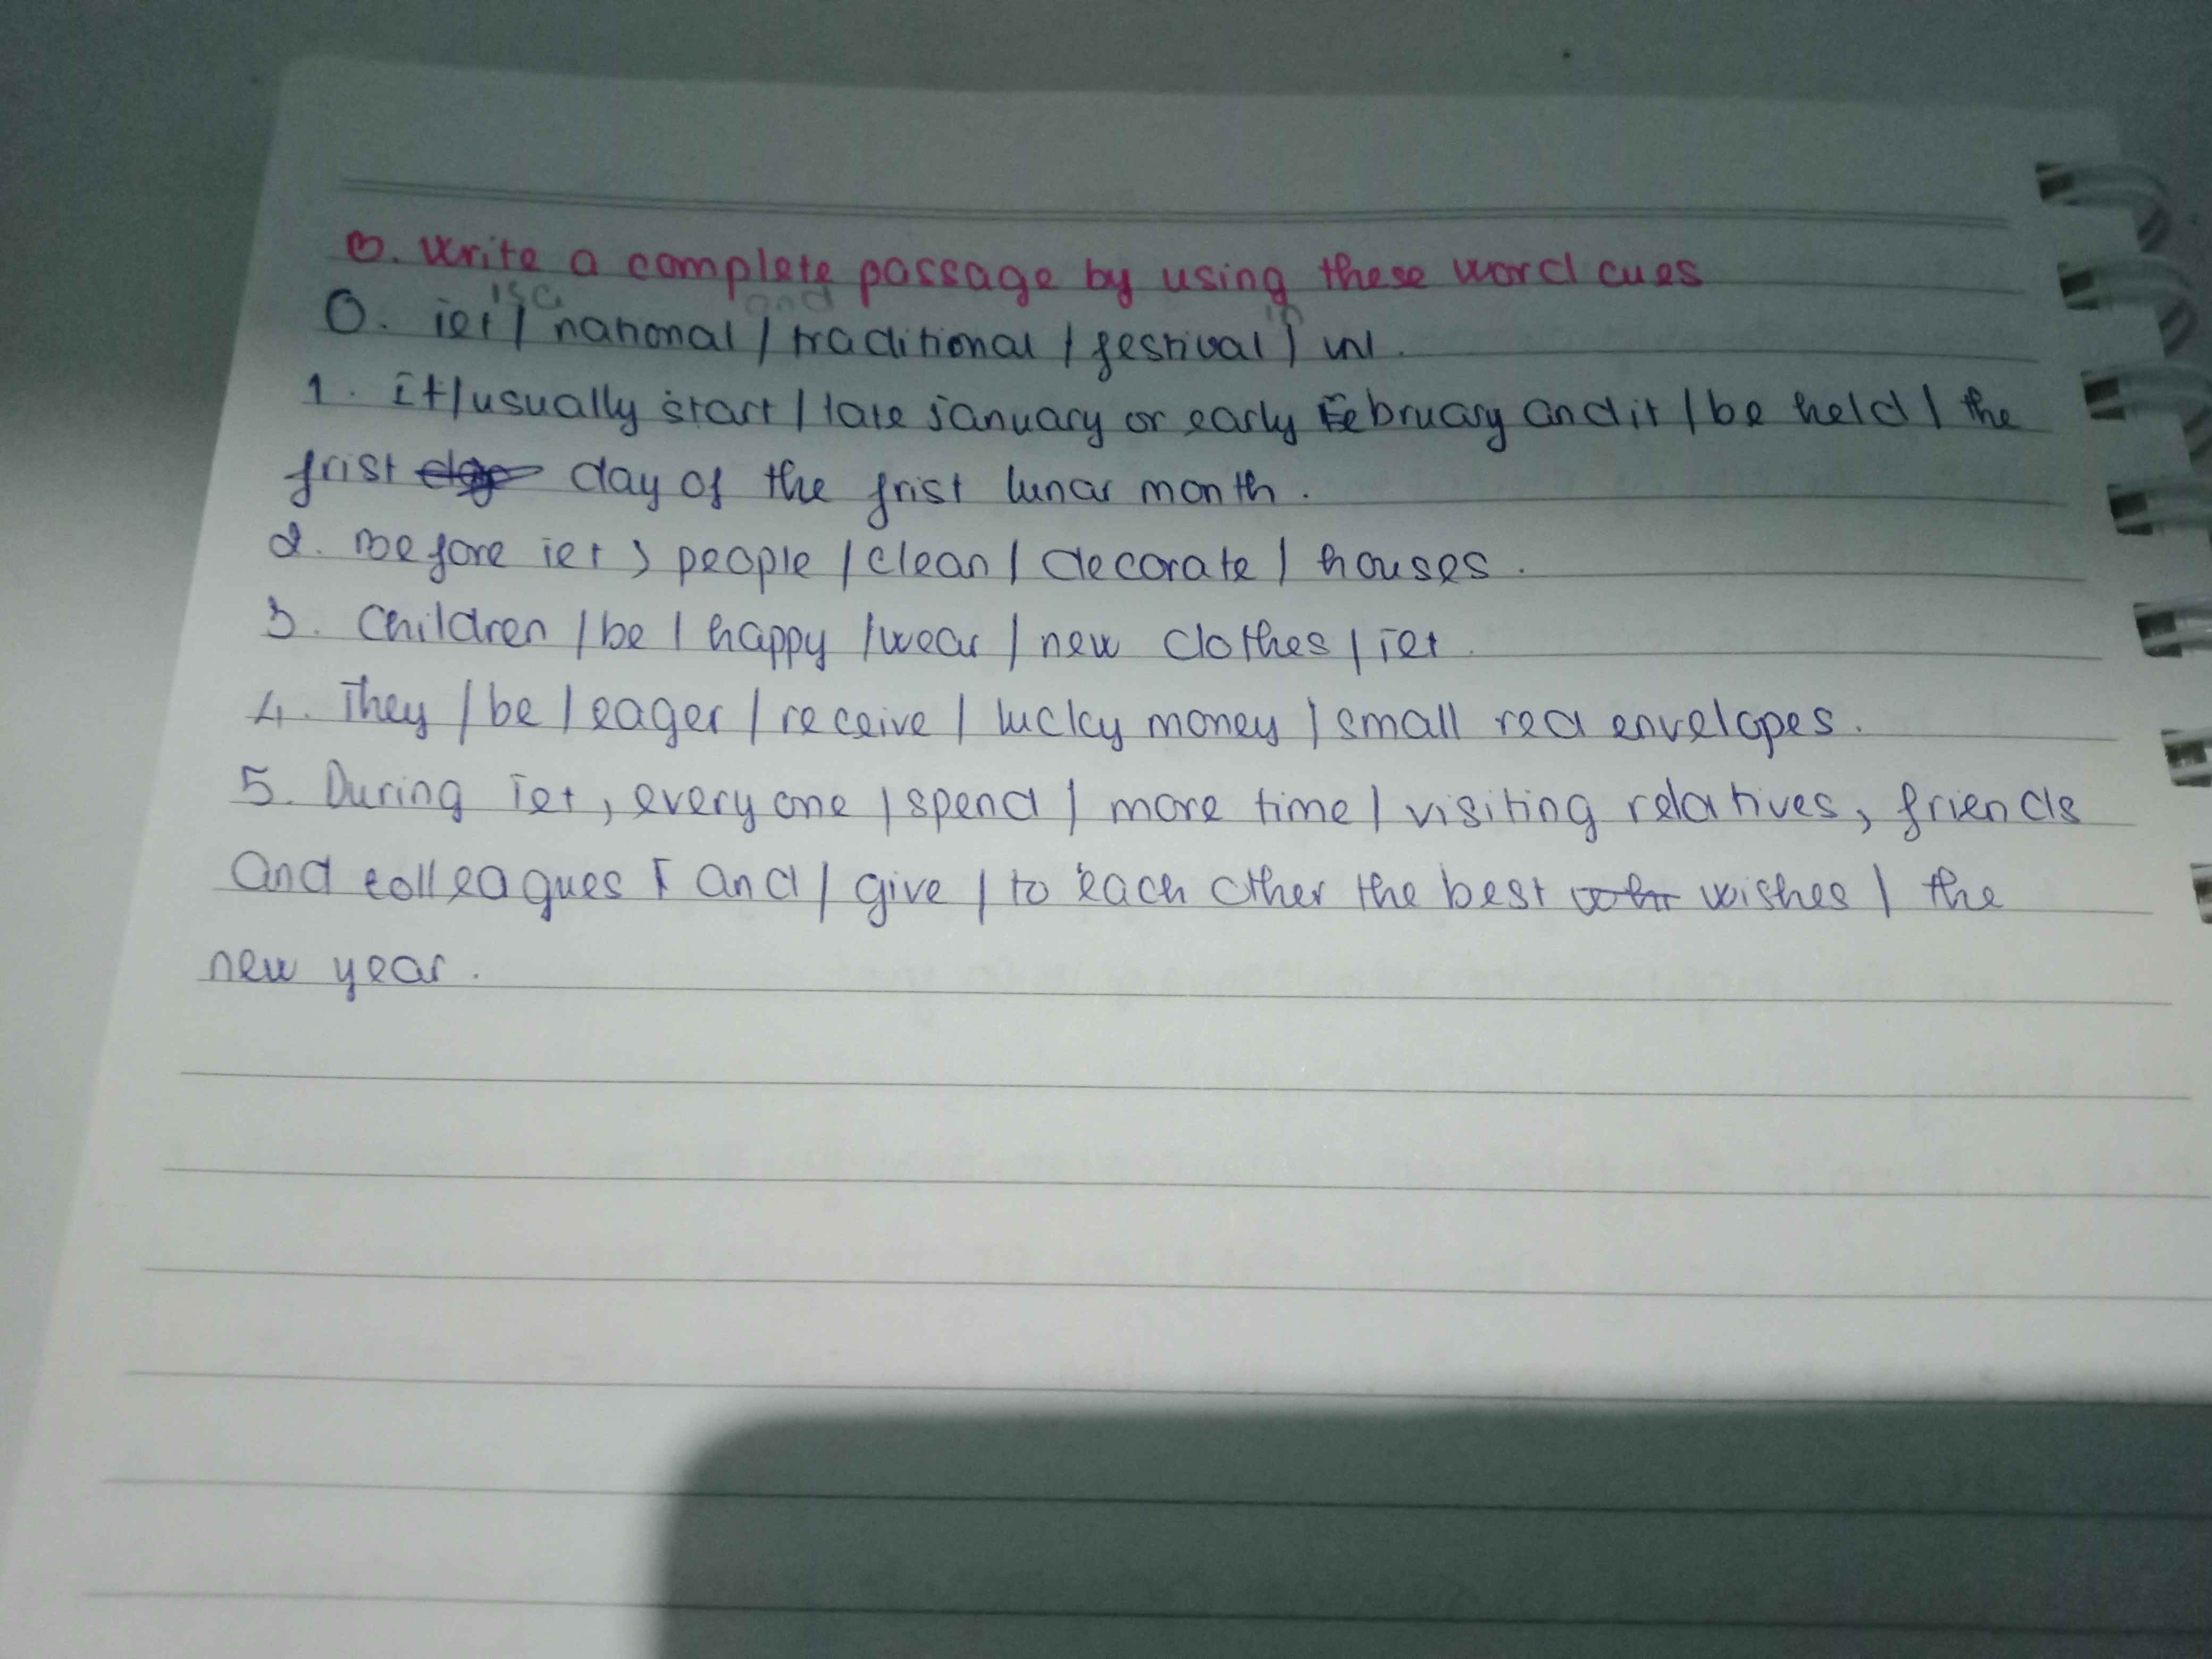 B. Write a complete passage by using these word cues
is a and in
0. Tet / national / traditional / festival / VN.
1. It/usually start / late January or early February and it / be held / the
frist day of the frist lunar month.
2. Before Tet, people / clean / decorate / houses.
3. Children / be / happy / wear / new clothes / Tet.
4. They / be / eager / receive / lucky money / small red envelopes.
5. During Tet, everyone / spend / more time / visiting relatives, friends
and colleagues / and / give / to each other the best wishes / the
new year.